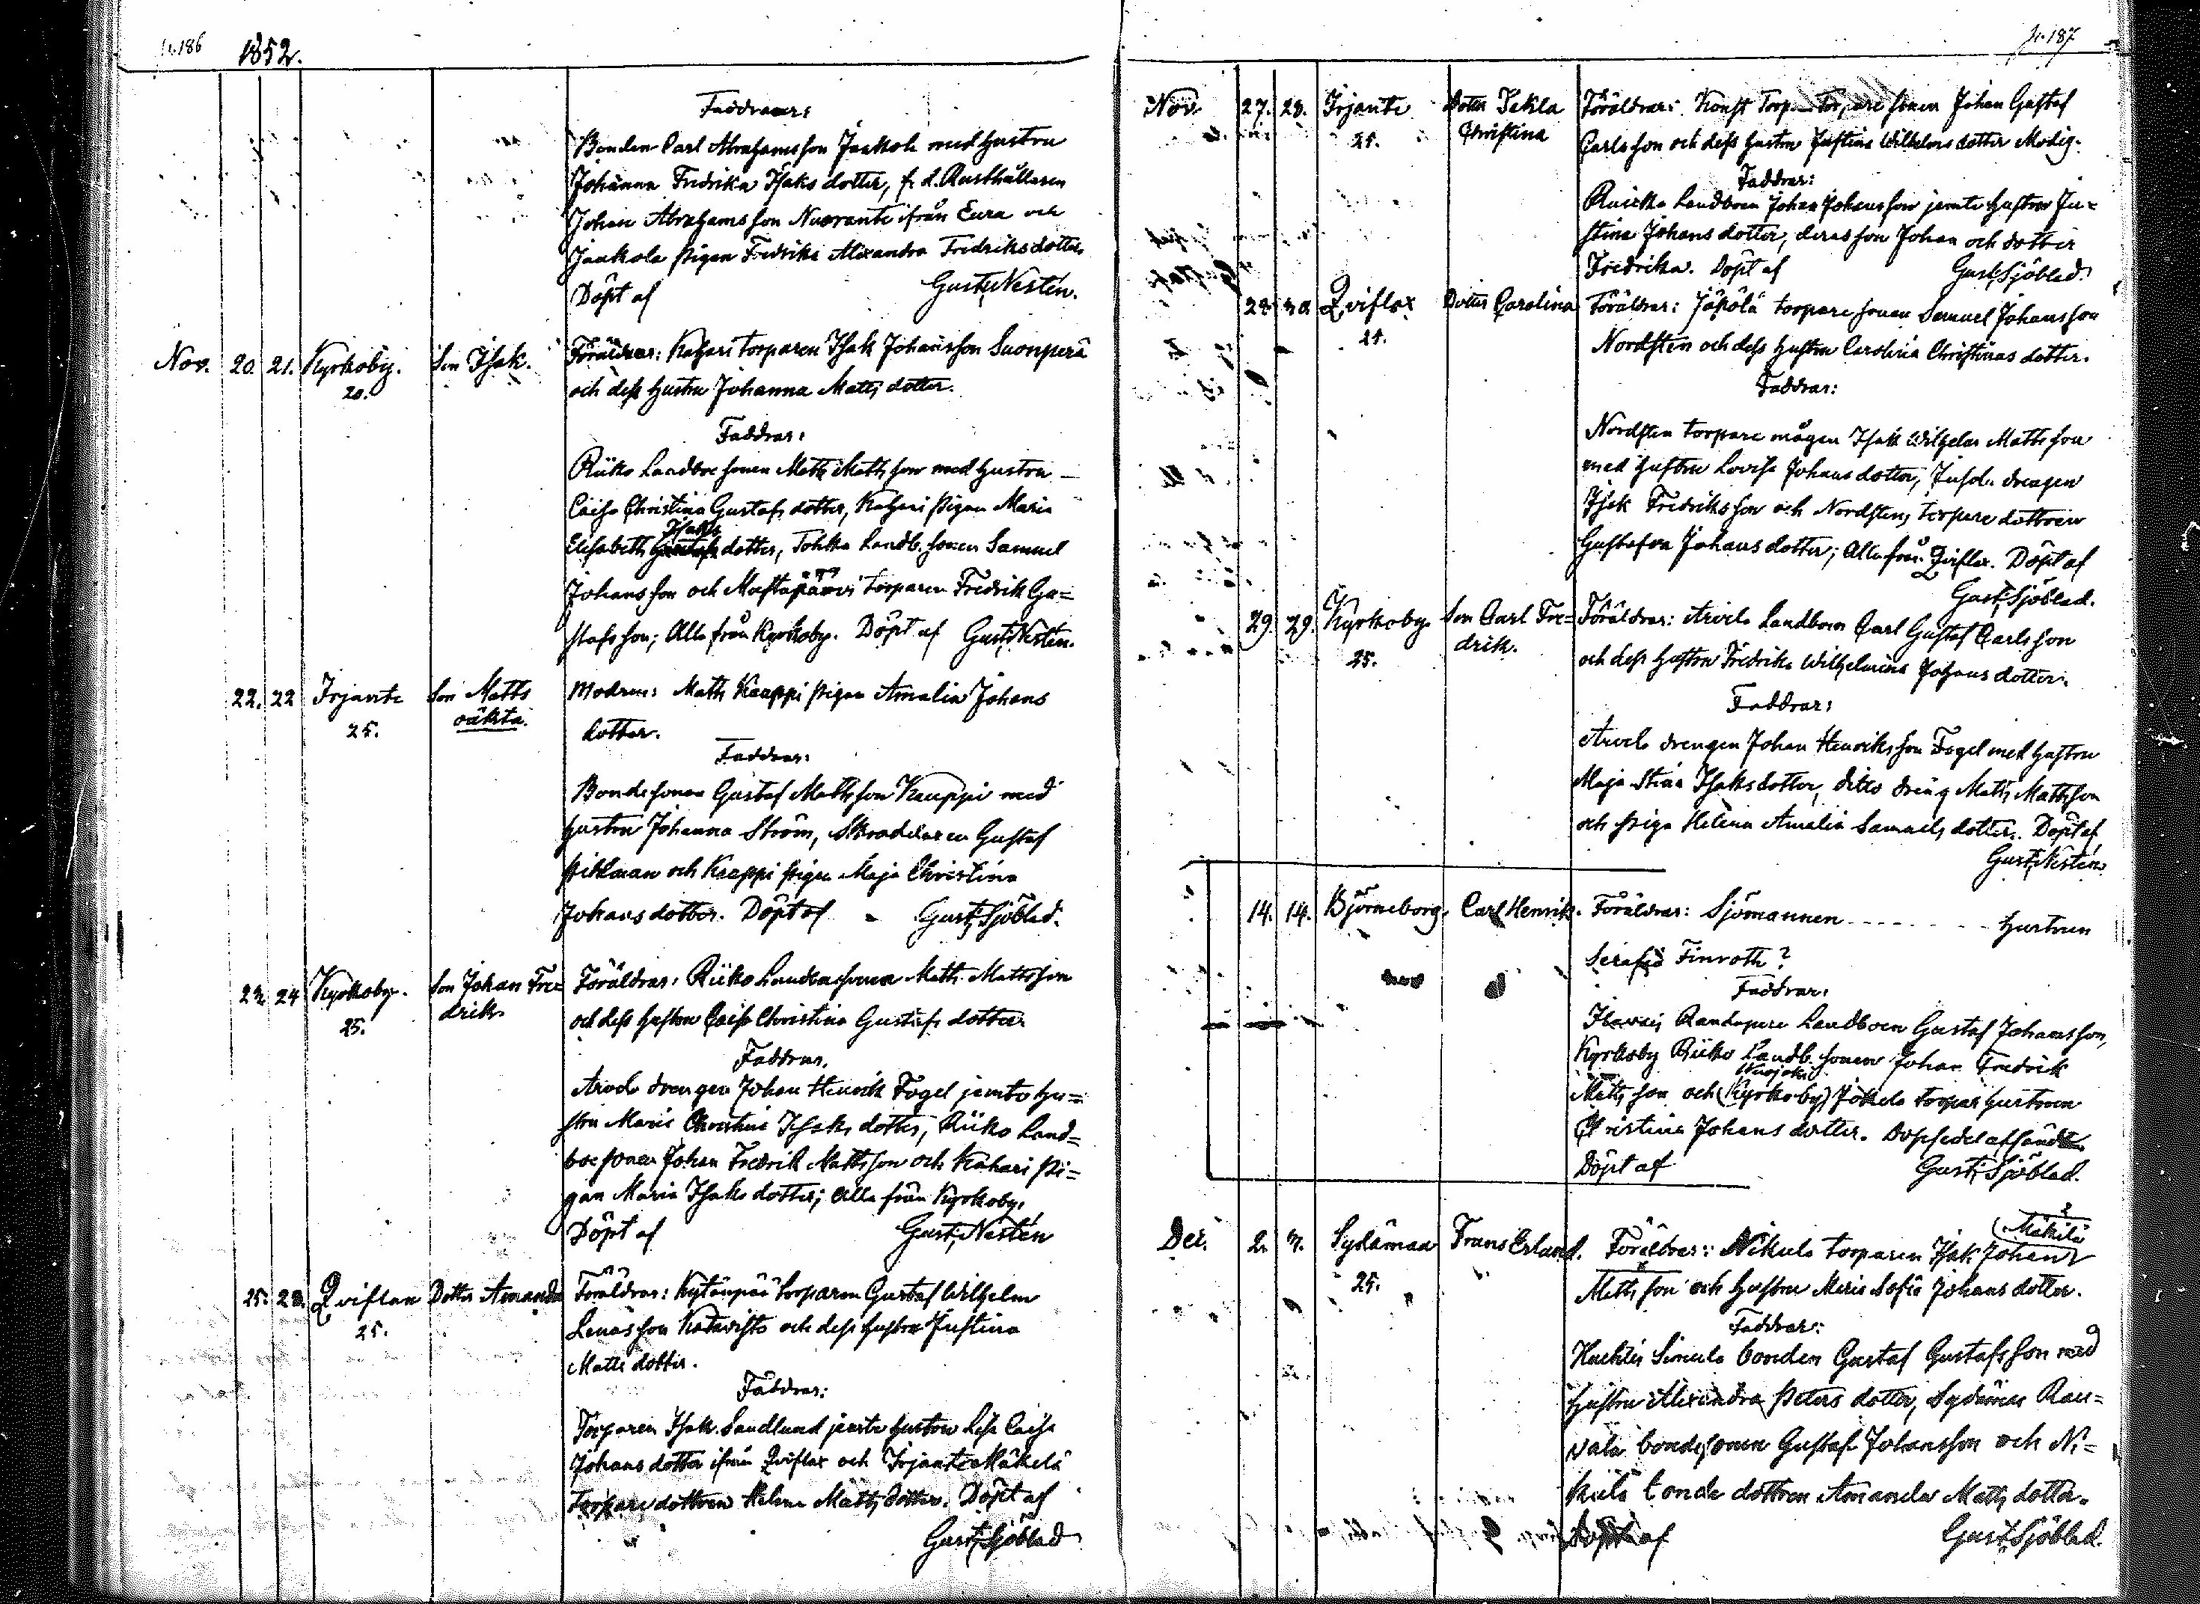 p. 186
1852.
Faddrar:
Bonden Carl Abrahamsson Jaakola med hustru
Johanna Fredrika Isaks dotter, f. d. Rusthållaren
Johan Abrahamsson Nuoranto ifrån Eura och
Jaakola pigan Fredrika Alexandra Fredriksdotter
Döpt af Gust: Nestén.
Nov. 20 21. Kyrkoby. Son Isak. Föräldrar: Kahari torparen Isak Johansson Suonperä
20. och dess hustru Johanna Matts dotter.
Faddrar:
Riiko Landboesonen Matts Mattsson med hustru
Caisa Christina Gustafs dotter, Kahari pigan Maria
Isaks
Elisabeth Gustafs dotter, Tohka Landb. sonen Samuel
Johansson och torparen Fredrik Gu=
stafsson; Alla från Kyrkoby. Döpt af Gust: Nestén.
22. 22 Irjante Son Matts Modren: Matts Kauppi pigan Amalia Johans
25. oäkta. dotter.
Faddrar:
Bondesonen Gustaf Mattsson Kauppi med
hustru Johanna Ström, Skraddaren Gustaf
Pihlman och Kauppi pigan Maja Christina
Johansdotter. Döpt af Gust: Sjöblad.
23. 24 Kyrkoby. Son Johan Fre= Föräldrar: Riiko Landboesonen Matts Mattsson
25. drik. och dess hustru Caisa Christina Gustafs dotter
Faddrar.
Arvela drengen Johan Henrik Fogel jemte hu=
stru Maria Christina Isaks dotter, Riiko Land=
boesonen Johan Fredrik Mattsson och Kahari pi=
gan Maria Isaks dotter; alla från Kyrkoby.
Döpt af Gust: Nestén
25. 28. Qviflax Dotter Amanda Föräldrar: Kytänpää torparen Gustaf Wilhelm
25. och dess hustru Justina
Matts dotter.
Faddrar:
Torparen Isak Sandlund jemte hustru Lisa Caisa
Johans dotter ifrån Qviflax och Irjante Mäkelä
Torparedottren Helena Matts dotter. Döpt af
Gust: Sjöblad
p. 187
Nov. 27. 28. Irjante Dotter Tekla Föräldrar: Torpare sonen Johan Gustaf
24. Christina Carlsson och dess hustru Justina Wilhelms dotter Modig.
Faddrar:
Landboen Johan Johansson jemte hustru Ju=
stina Johans dotter, deras son Johan och dotter
Fredrika. Döpt af Gust: Sjöblad.
28. 30. Qviflax Dotter Carolina Föräldrar: torpare sonen Samuel Johansson
24. Nordsten och dess hustru Carolina Christinas dotter.
Faddrar:
Nordsten torpare mågen Isak Wilhelm Mattsson
med hustru Lovisa Johans dotter, drengen
Isak Fredriksson och Nordstens torpare dottren
Gustafva Johans dotter; Alla från Qviflax. Döpt af
Gust: Sjöblad.
29. 29. Kyrkoby Son Carl Fre= Föräldrar: Arvela Landboen Carl Gustaf Carlsson
25. drik. och dess hustru Fredrika Wilhelmina Johans dotter.
Faddrar:
Arvela drengen Johan Henriksson Fogel med hustru
Maja Stina Isaksdotter, ditto dräng Matts Mattsson
och piga Helena Amalia Samuels dotter. Döpt af
Gust: Nestén
14. 14. Björneborg. Carl Henrik. Föräldrar: Sjömannen - - - - - - - hustrun
Serafia Finroth?
Faddrar:
Landboen Gustaf Johansson,
Kyrkoby Riiko Landb. sonen Johan Fredrik
Matts son och (Kyrkoby) Jökela torpar hustrun
Christina Johans dotter. Dopsedel afsändt
Döpt af Gust: Sjöblad.
Dec. 2. 3. Sydämaa Frans Erland. Föräldrar: Nikula torparen Isak Johan
(Mäkilä
25. Matts son och hustru Maria Sofia Johans dotter.
Faddrar:
bonden Gustaf Gustafsson med
hustru Alexandra Peters dotter, Sydämaa Rau=
vala bondesonen Gustaf Johansson och Ni=
kula bonde dottren Amanda Matts dotter.
Döpt af Gust: Sjöblad.